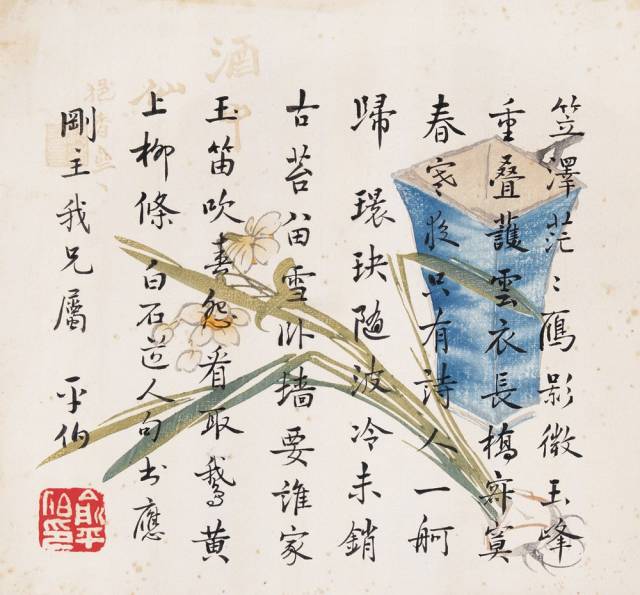 笠澤茫〻鴈影微玉峰
重叠護雲衣長橋寂寞
春寒夜只有詩人一舸
歸 環玦隨波冷未銷
古苔留雪卧墙要誰家
玉笛吹春怨看取鵝黃
上柳條 白石道人句书應
剛主我兄屬 平伯
俞平伯印
酒中
仙